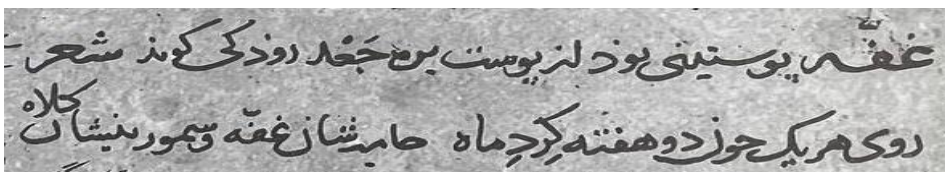 غفّه پوستینی بوذ از پوست بره جَعْد روذکی کوید شعر
روی هر یک چون دو هفته کِردِ ماه جامه شان غفّه و سمورینشان کلاه